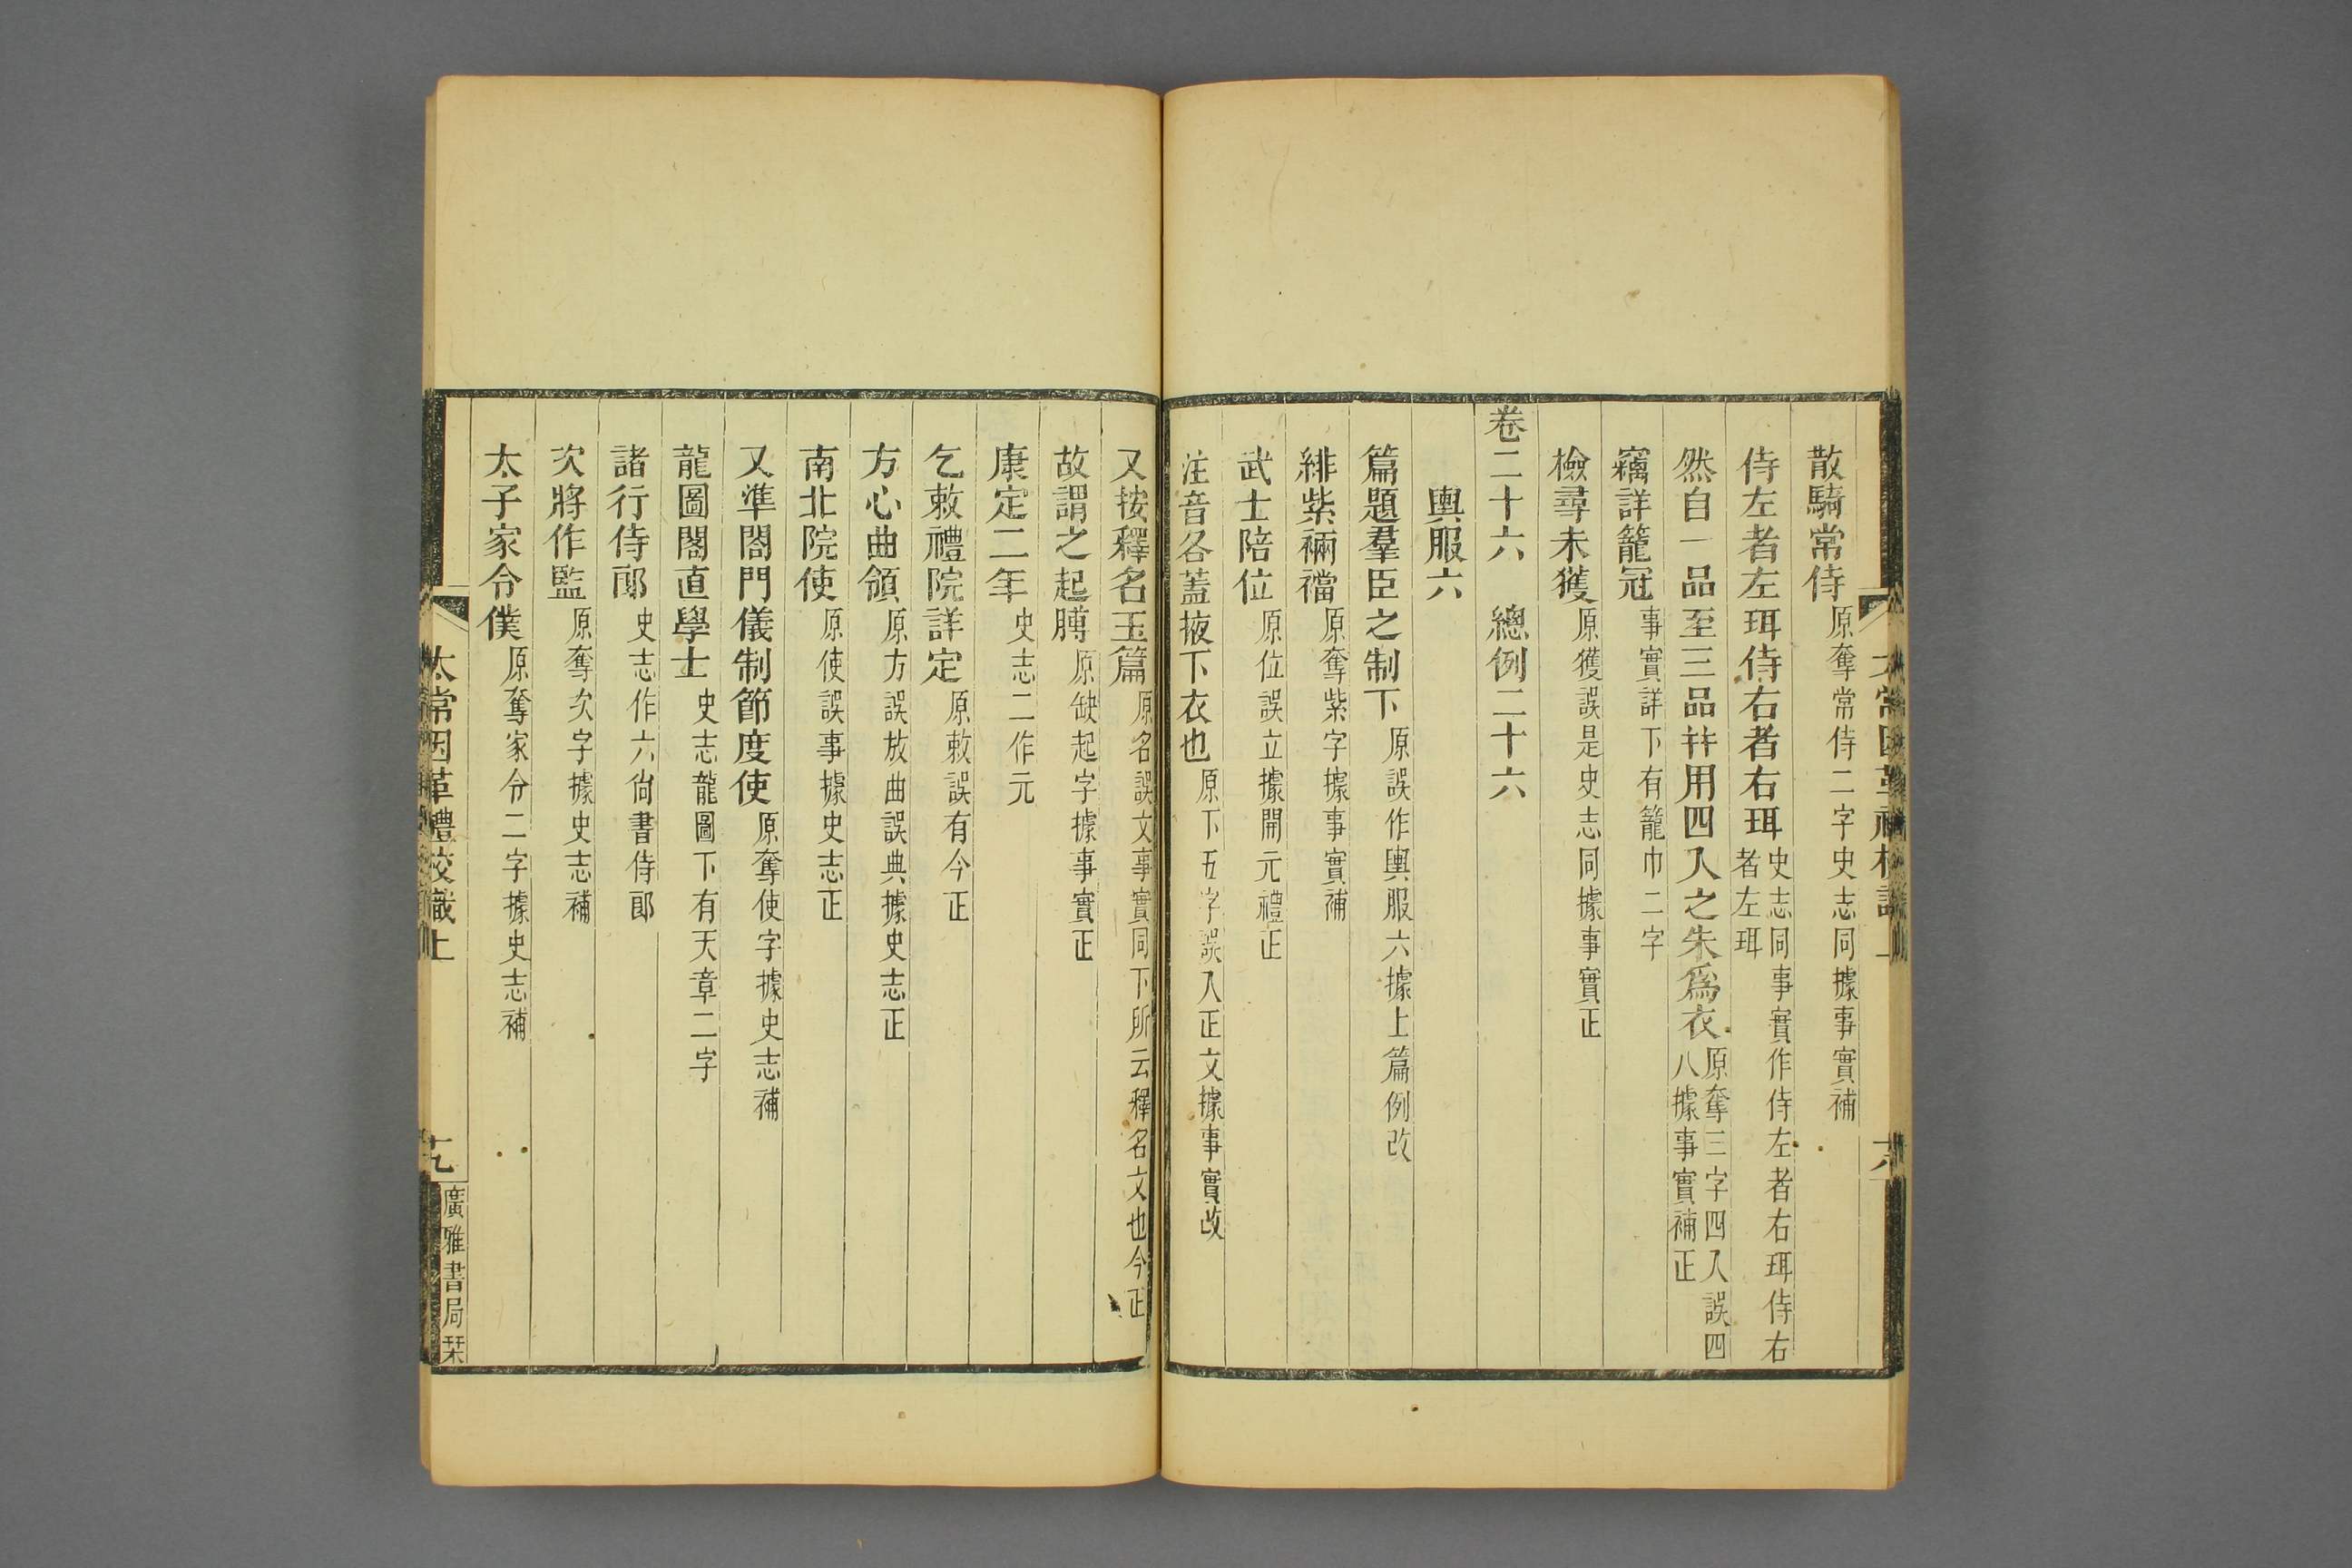 散騎常侍原奪常侍二字史志同據事實補
侍左者左珥侍右者右珥史志同事實作侍左者右珥侍右者左珥
然自一品至三品幷用四人之朱爲衣原奪三字四人誤四八據事實補正
竊詳籠冠事實詳下有籠巾二字
檢尋未獲原獲誤是史志同據事實正
卷二十六　總例二十六
輿服六
篇題羣臣之制下原誤作輿服六據上篇例改
緋紫裲襠原奪紫字據事實補
武士陪位原位誤立據開元禮正
注音各蓋掖下衣也原下五字誤入正文據事實改
又按釋名玉篇原名誤文事實同下所云釋名文也今正
故謂之起膞原缺起字據事實正
康定二年史志二作元
乞敕禮院詳定原敕誤有今正
方心曲領原方誤放曲誤典據史志正
南北院使原使誤事據史志正
又準閤門儀制節度使原奪使字據史志補
龍圖閣直學士史志龍圖下有天章二字
諸行侍郎史志作六尙書侍郎
次將作監原奪次字據史志補
太子家令僕原奪家令二字據史志補
太常因革禮校識上
十九
廣雅書局栞